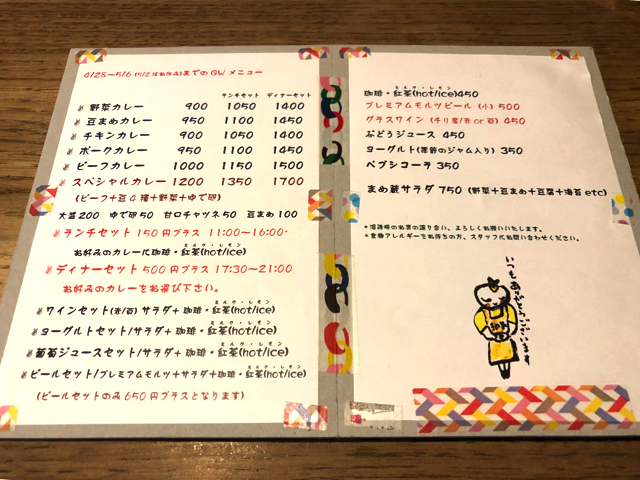 4/28～5/6 (5/2はお休み)までのGW メニュー
ランチセット ディナーセット
野菜カレー 900 1050 1400
豆まめカレー 950 1100 1450
チキンカレー 900 1050 1400
ポークカレー 950 1100 1450
ビーフカレー 1000 1150 1500
スペシャルカレー 1200 1350 1700
(ビーフ+豆4種+野菜+ゆで卵)
大盛200 ゆで卵50 甘口チャツネ50 豆まめ100
ランチセット 150円プラス 11:00～16:00
お好みのカレーに珈琲・紅茶(hot/ice)
ミルク・レモン
ディナーセット 500円プラス 17:30～21:00
お好みのカレーをお選び下さい。
ワインセット(赤/白) サラダ+珈琲・紅茶(hot/ice)
ミルク・レモン
ヨーグルトセット/サラダ+珈琲・紅茶(hot/ice)
ミルク・レモン
葡萄ジュースセット/サラダ+珈琲・紅茶(hot/ice)
ミルク・レモン
ビールセット/プレミアムモルツ+サラダ+珈琲・紅茶(hot/ice)
ミルク・レモン
(ビールセットのみ650円プラスとなります)
ミルク・レモン
珈琲・紅茶(hot/ice)450
プレミアムモルツビール (小) 500
グラスワイン (チリ産/赤 or 白) 450
ぶどうジュース 450
ヨーグルト(季節のジャム入り) 350
ペプシコーラ 350
まめ蔵サラダ 750 (野菜+豆まめ+豆腐+海苔 etc)
*混雑時のお席の譲り合い、よろしくお願いいたします。
*食物アレルギーをお持ちの方、スタッフにお問い合わせください。
いつもありがとうございます